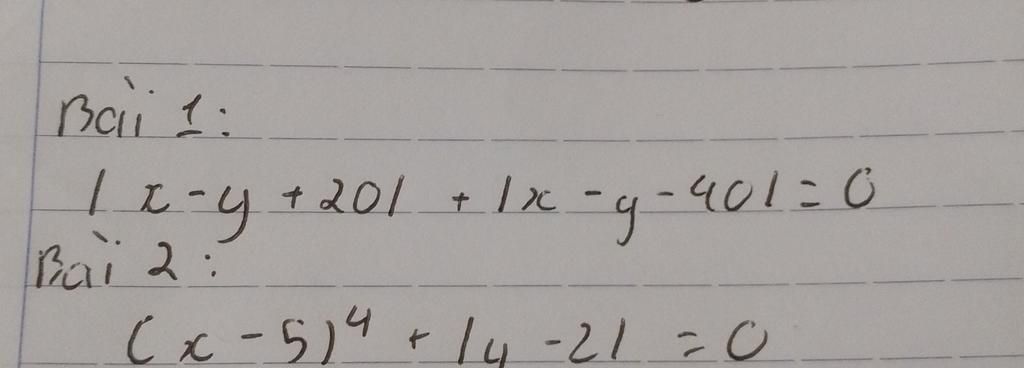 Bài 1:
|x-y+20| + |x-y-40| = 0
Bài 2:
(x-5)⁴ + |y-2| = 0